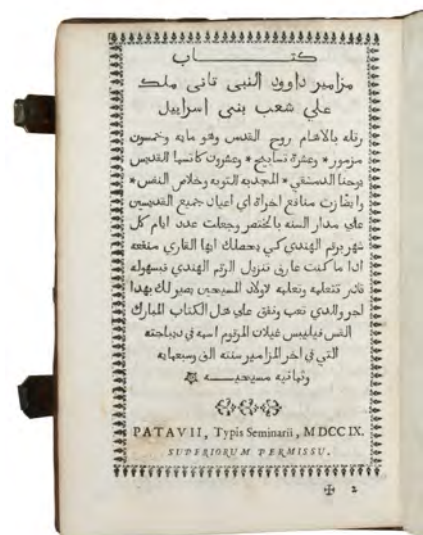 كتاب
مزامير داوود النبى تانى ملك
علي شعب بنى اسراييل
رتله بالاهام روح القدس وهو مايه وخمسون
مزمور * وعشرة تسابيح * وعشرون كاتسما القديس
يوحنا الدمشقي * المجدبه التوبه وخلاص النفس *
وايضا زت منافع اخراة اي اعيان جميع القديسين
علي مدار السنه بالختصر وجعلت عدد ايام كل
شهر برقم الهندي كي يحصلك ايها القاري منفعه
ادا ما كنت عارف تنزيل الرقم الهندي فبسهوله
قادر تتعلمه وتعلمه لاولاد المسيحين يصير لك بهدا
اجر والدي تعب ونفق علي هدا الكتاب المبارك
القس فيليبس غيلان المرقوم اسمه في ديباجته
التي في اخر المزامير سنه الف وسبعمايه
وثمانيه مسيحيه
PATAVII, Typis Seminarii, MDCCIX.
SUPERIORUM PERMISSU.
✠ 2